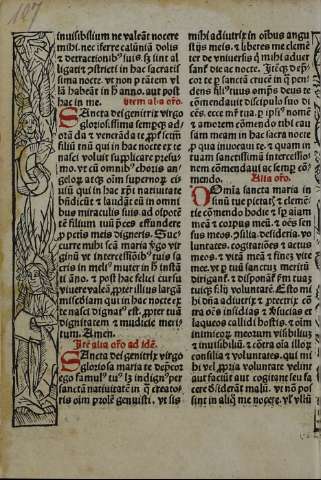 127
inuisibilium ne valeant nocere
mihi. nec iferre calūniā dolis
⁊ detractionibꝰ suis. sꝫ sint al
ligati ⁊ stricti in hac sacratissi
ma nocte. vt non ptātem vl
lā habeāt in hͦ anno. aut post
hac in me. Item alia oŕo.
Sancta dei genitrix virgo
gloriosissima semperqꝫ ad
orādā ⁊ venerāda te per sctm̄
filiū tuū qui in hac nocte ex te
nasci voluit supplicare presu
mo. vt cū omnibꝰ choris an
geloꝝ atqꝫ oīm supernorum ci
uiū qui in hac xp̄i natiuitate
bn̄dicūt ⁊ laudāt eū in omni
bus miraculis suis
filium tuū preces effundere
ꝓ petis meis digneris. Suc
curre mihi scā maria virgo vir
ginū vt intercessiōibꝰ tuis sa
cris in meliꝰ muter in hͦ insta
ti āno. ⁊ post hac felici cursu
viuere valeā propter illius largā
miseḉdiam qui in hac nocte ex
te nasci dignatꝰ est. propter tuā
dignitatem ⁊ mudicie meri
tum. Amen.
Itē alia oŕo ad idē.
Sancta dei genitrix virgo
gloriosa maria te deprecor
ego famulꝰ tuꝰ lꝫ indignꝰ per
sanctā natiuitatē in q̄ creatorē
oīm prole genuisti. vt sis
mihi adiutrix in oībus angu
stijs meis. ⁊ liberes me clemē
ter de vniuersis mihi aduer
sant̄ die ac nocte. Itēqꝫ dep̄
cor te ꝑ sanctā crucē in qͣ pen
dens filiꝰ tuus te cō
mendauit discipulo suo di
cēs. ecce mr̄ tua. ꝑ ipsiꝰ nomē
⁊ amorem cōmendo tibi cau
sam meam in hac sacra nocte
ꝑ qua inuocaui te. ⁊ quam in
tuam sanctissimā intercessio
nem cōmendaui ac semper cō
mendo. Alia oŕo.
O Domīa sancta maria in
sinū tue pietatꝭ. ⁊ clemē
tie cōmendo hodie ⁊ sp̄ aīam
meā ⁊ corpus meū. ⁊ oēs sen
sus meos. ꝯsilia. desideria. vo
luntates. cogitatiōes ⁊ actus
meos. ⁊ vitā meā ⁊ finē vite
mee. vt ꝑ tuū sanctum meritū
dirigant̄ ⁊ disponāt̄ fm̄ tuā
tuiqꝫ filij volūtatē. Esto mi
hi dn̄a adiutrix ⁊ protectrix cō
tra oēs insidias ⁊ versucias et
laqueos callidi hostis. ⁊ oīm
inimicorum meorum visibiliū
⁊ inuisibiliū. ⁊ cōtra oīa illorum
consilia ⁊ voluntates. qui mi
hi vel propria voluntate velint
aut faciūt aut cogitant seu fa
cere desiderāt malū. vt nō pos
sint in aliquo me nocere. vel vllū